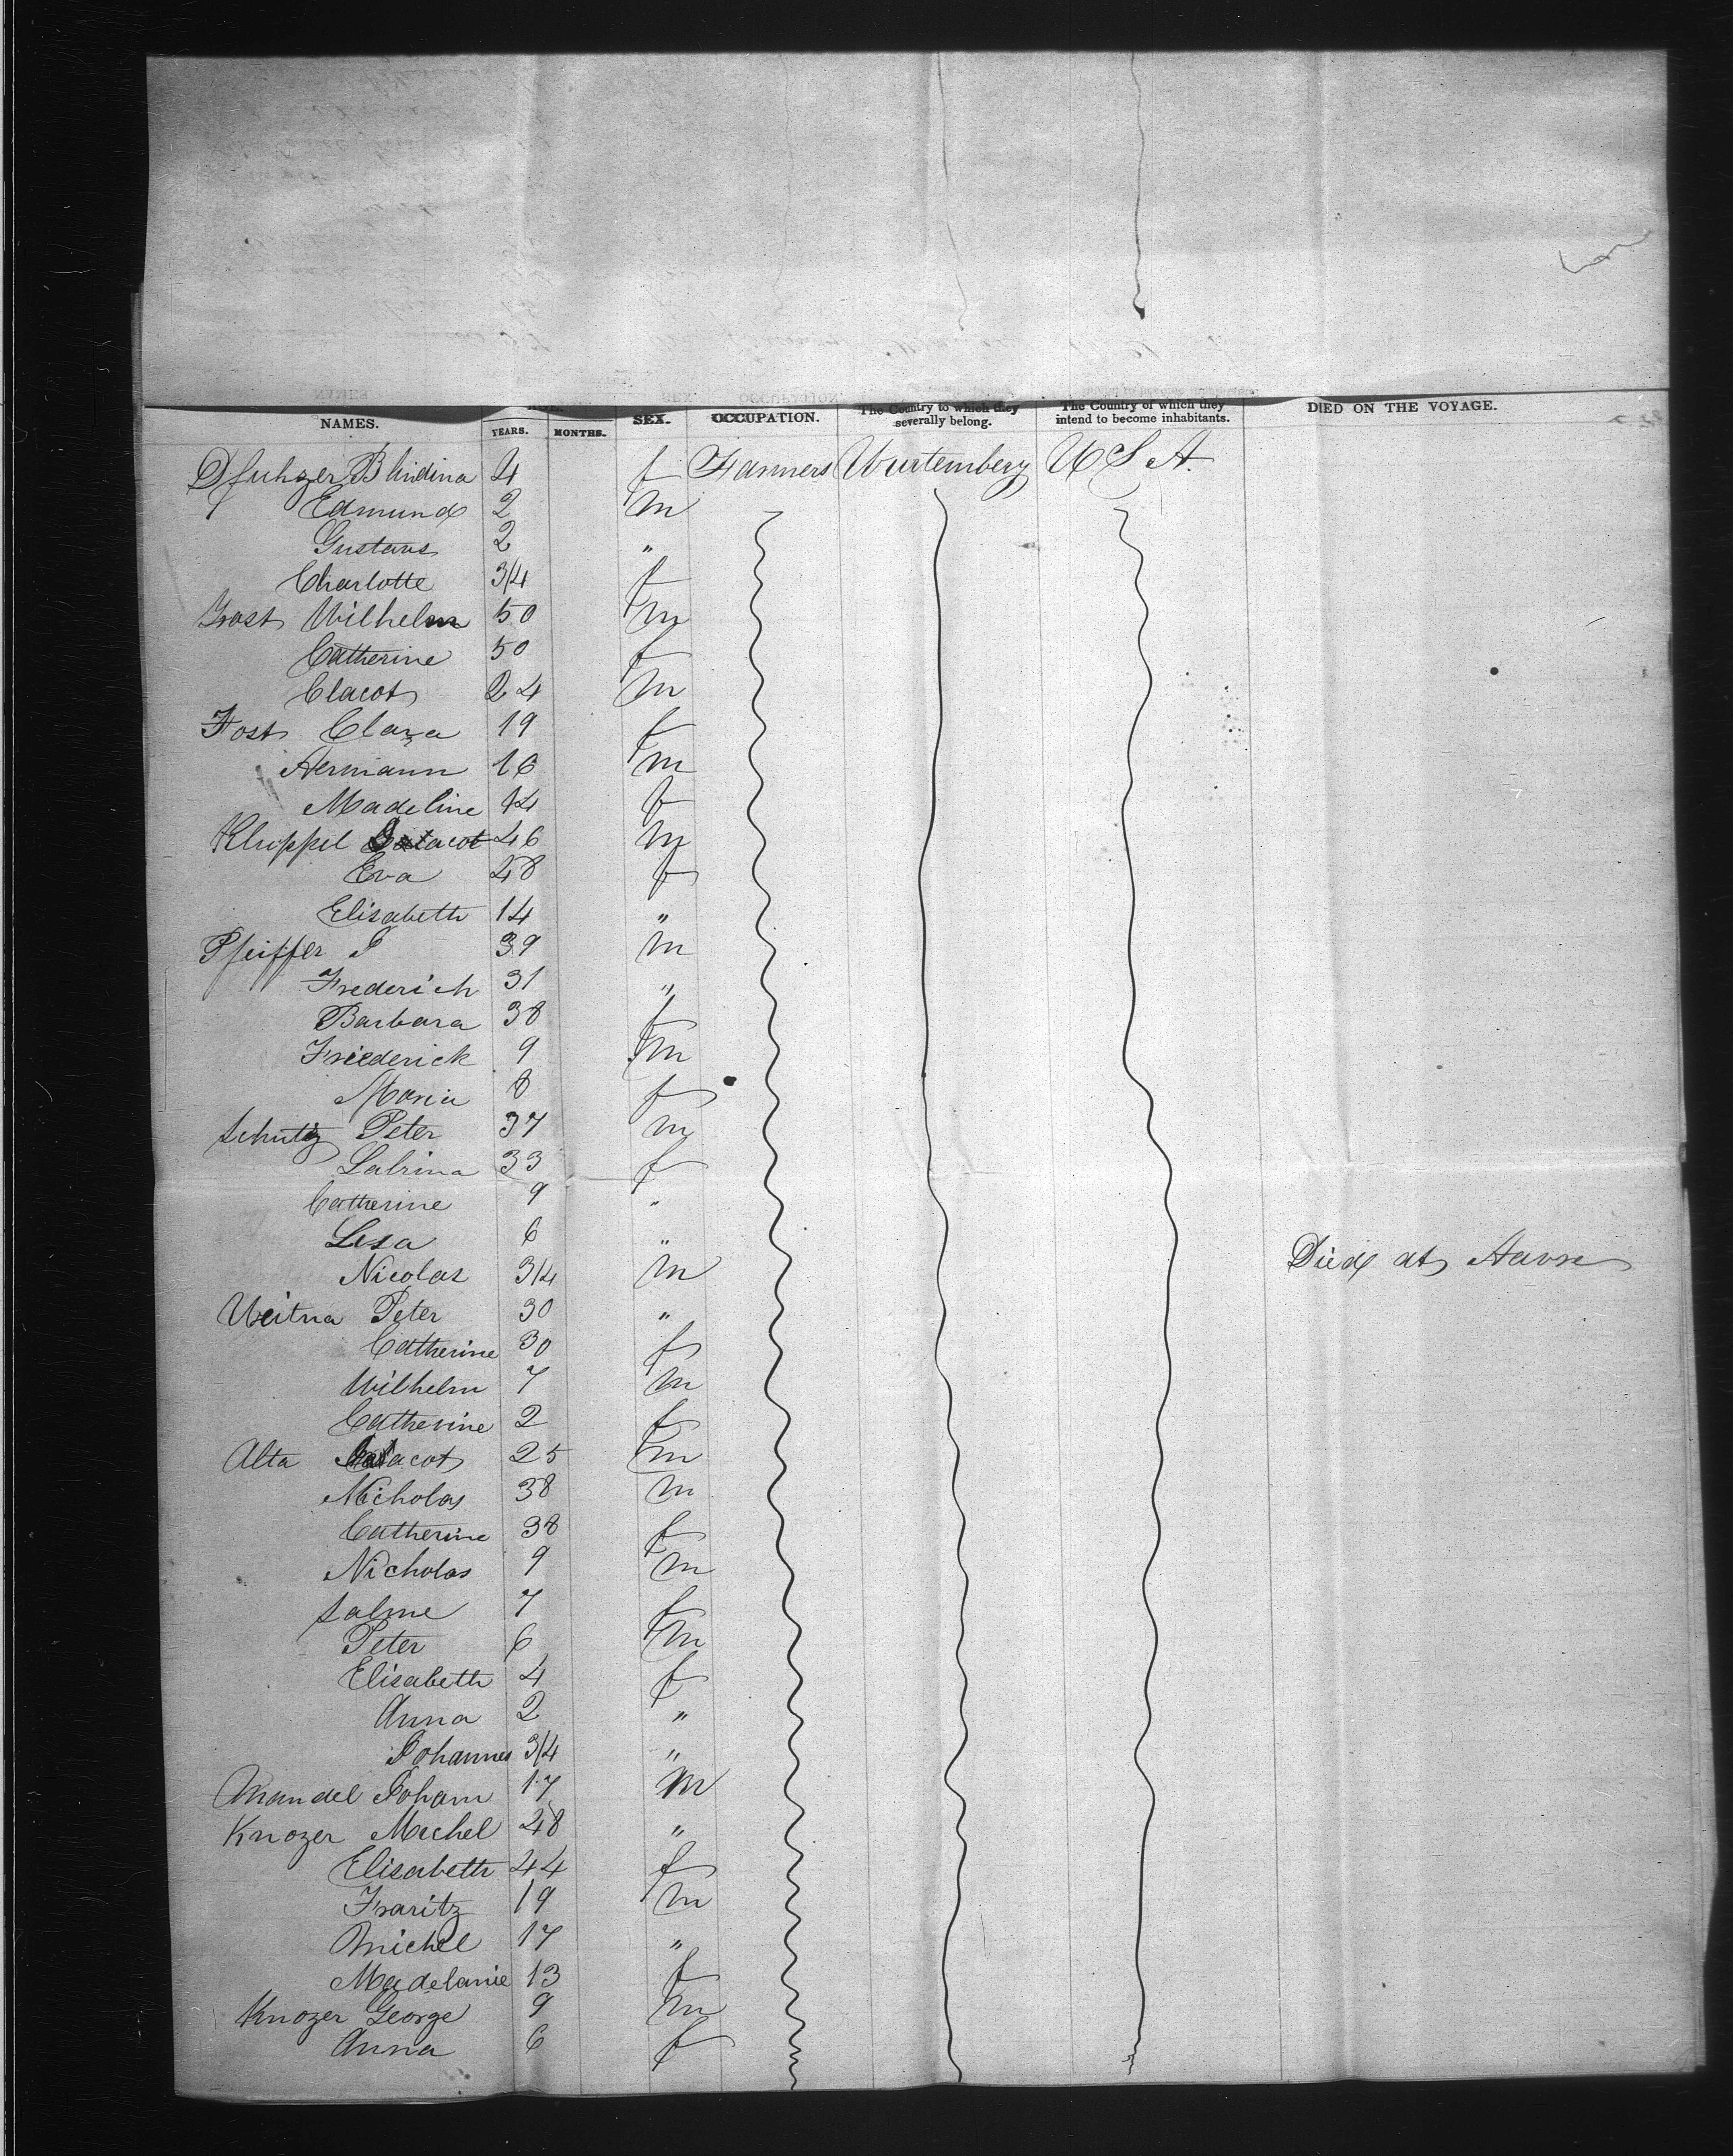 NAMES. YEARS. MONTHS. SEX. OCCUPATION. The Country to which they severally belong. The Country of which they intend to become inhabitants. DIED ON THE VOYAGE.
Pfuhzer Blindina 4 f Farmers Wurtemberg U S A
Edmund 2 m
Gustavs 2 "
Charlotte 3/4 f
Jost Wilhelm 50 m
Catherine 50 f
Clacot 24 m
Jost Clara 19 f
Hermann 16 m
Madeline 14 f
Kluppel 46 m
Eva 48 f
Elisabeth 14 "
Pfeiffer J 39 m
Frederich 31 "
Barbara 38 f
Friederick 9 m
Maria 8 f
Schutz Peter 37 m
Labrina 33 f
Catherine 9 "
Lesa 6 "
Nicolas 3/4 m Died at Havre
Weitna Peter 30 "
Catherine 30 f
Wilhelm 7 m
Catherine 2 f
Alta 25 m
Nicholas 38 m
Catherine 38 f
Nicholas 9 m
Salme 7 f
Peter 6 m
Elisabeth 4 f
Anna 2 "
Johannes 3/4 "
Mandel Joham 17 m
Knozer Michel 48 "
Elisabeth 44 f
Fraritz 19 m
Michel 17 "
Madelanie 13 f
Knozer George 9 m
Anna 6 f